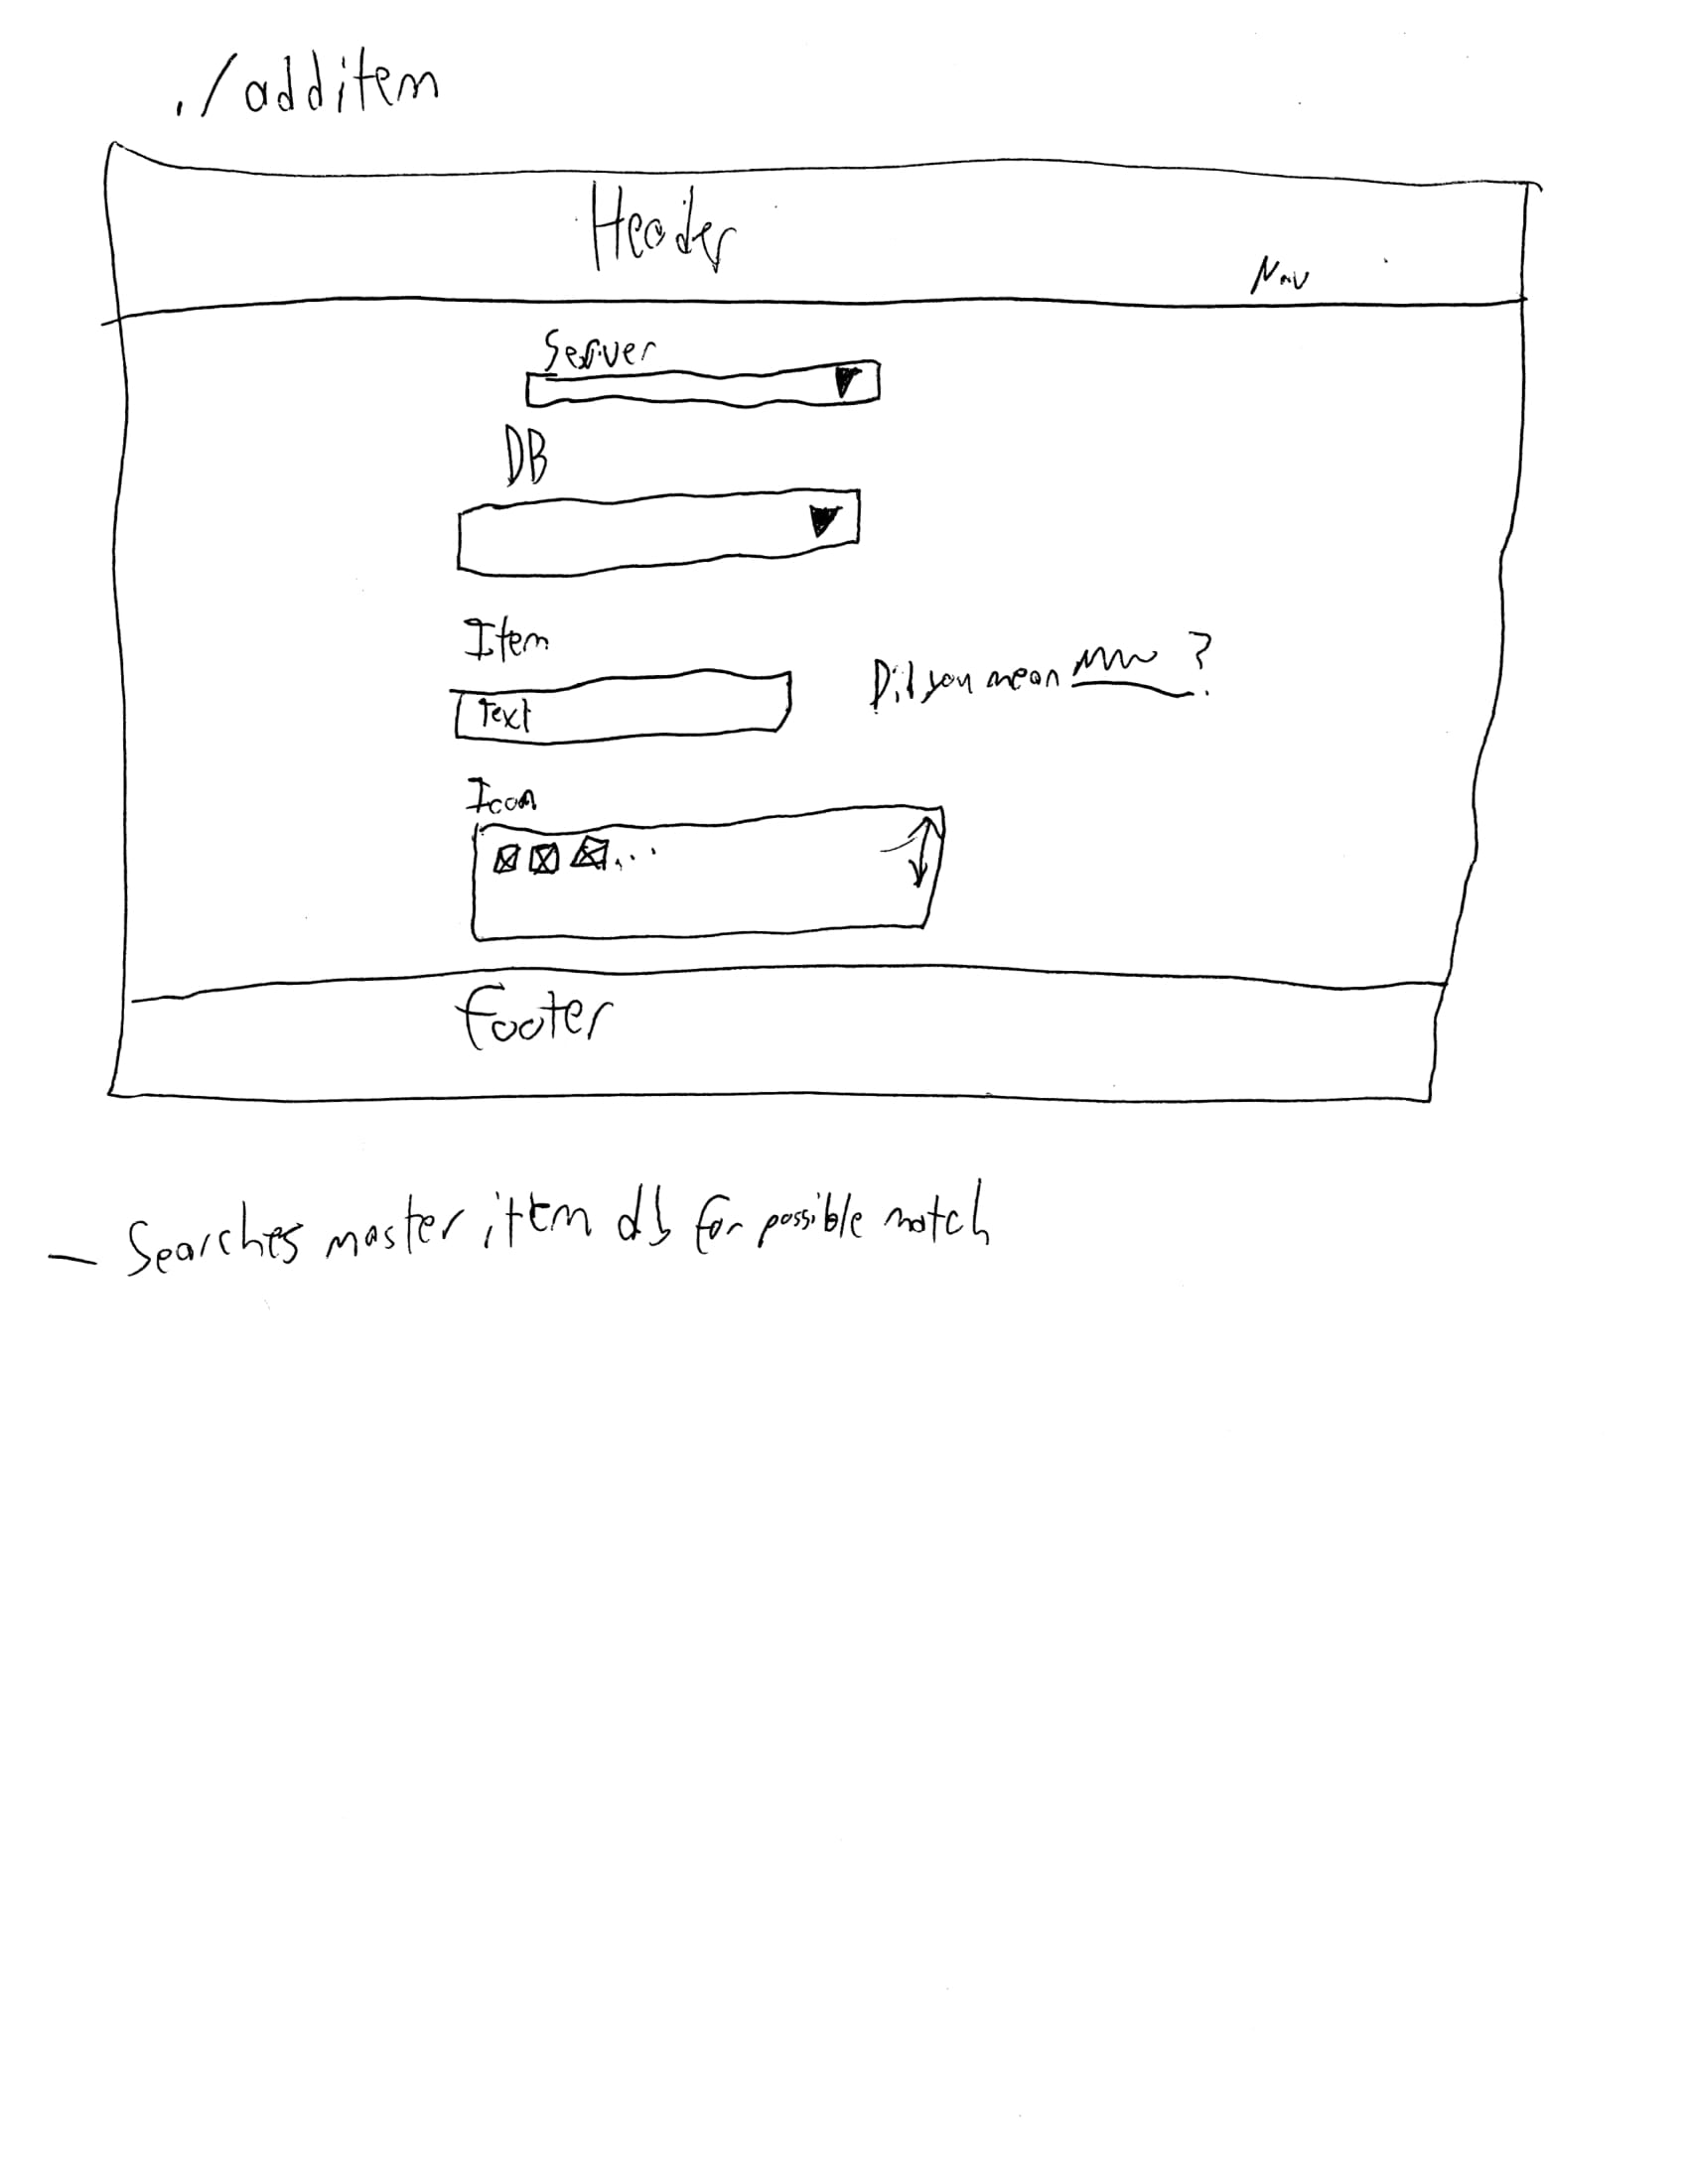 ./additem
Header
Nav
Server
DB
Item
Text
Did you mean ?
Icon
...
Footer
- Searches master item db for possible match